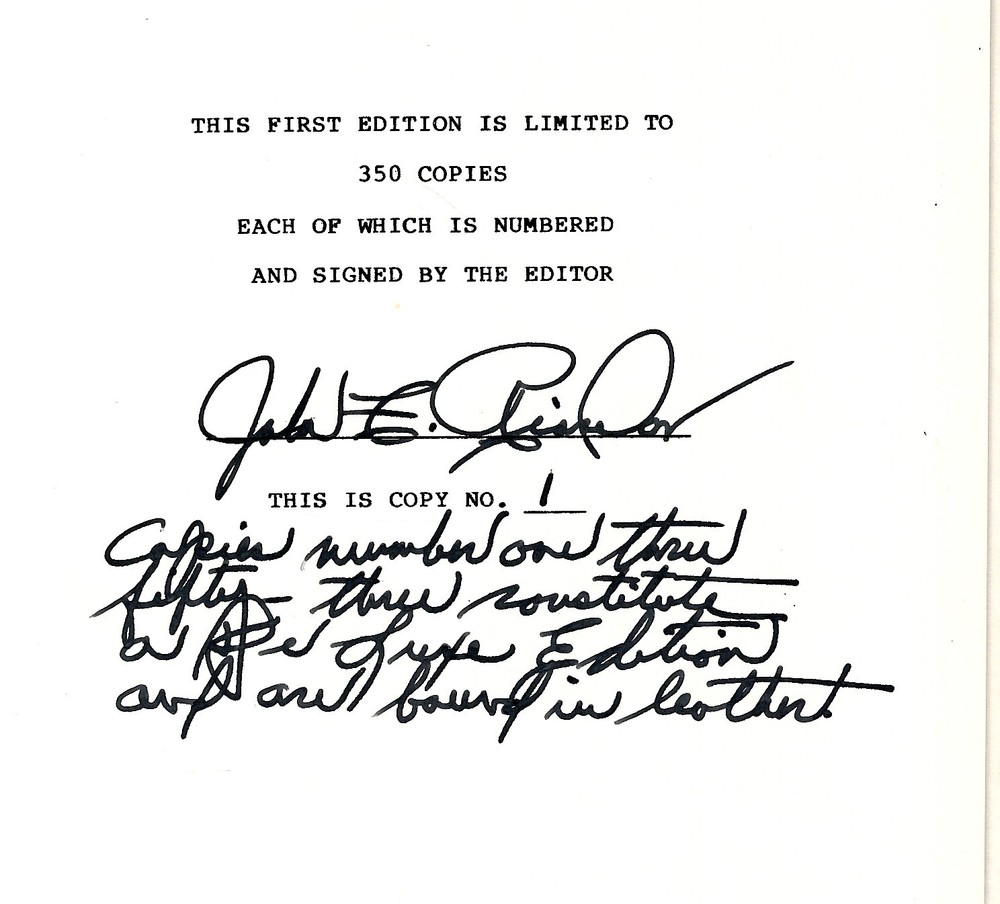 THIS FIRST EDITION IS LIMITED TO
350 COPIES
EACH OF WHICH IS NUMBERED
AND SIGNED BY THE EDITOR
John E.
THIS IS COPY NO. 1
Copies number one thru
fifty-three constitute
a De Luxe Edition
and are bound in leather.